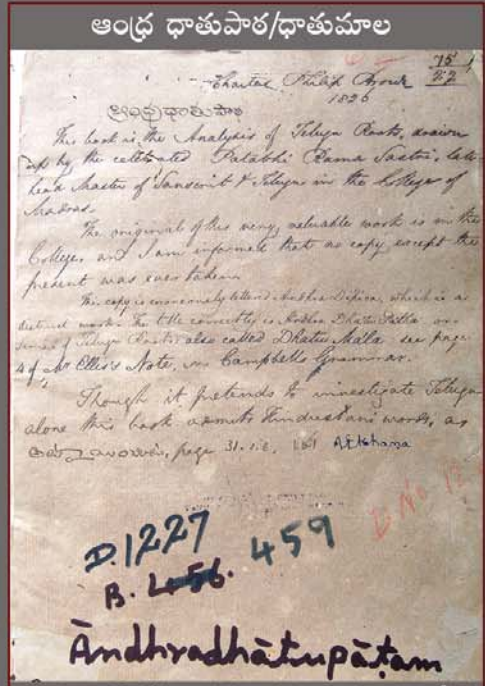 ఆంధ్ర ధాతుపాఠ/ధాతుమాల
75
27
Charles Philip Brown
1826
ఆంధ్రధాతుపాఠ
This book is the Analysis of Telugu Roots, drawn
up by the celebrated Patabhi Rama Sastri, late
head Master of Sanscrit & Telugu in the College of
Madras.
The original of this very valuable work is in the
College, and I am informed that no copy except the
present was ever taken
This copy is erroneously lettered Andhra Dipica, which is a
distinct work. The title correctly is Andhra Dhatu Patha or
series of Telugu Roots also called Dhatu Mala see page
4 of Mr Ellis's Note, in Campbells Grammar.
Though it pretends to investigate Telugu
alone this book admits Hindustani words, as
page 31. 1.6.
D. No 12
D.1227
459
B. 456.
Āndhradhātupāṭam